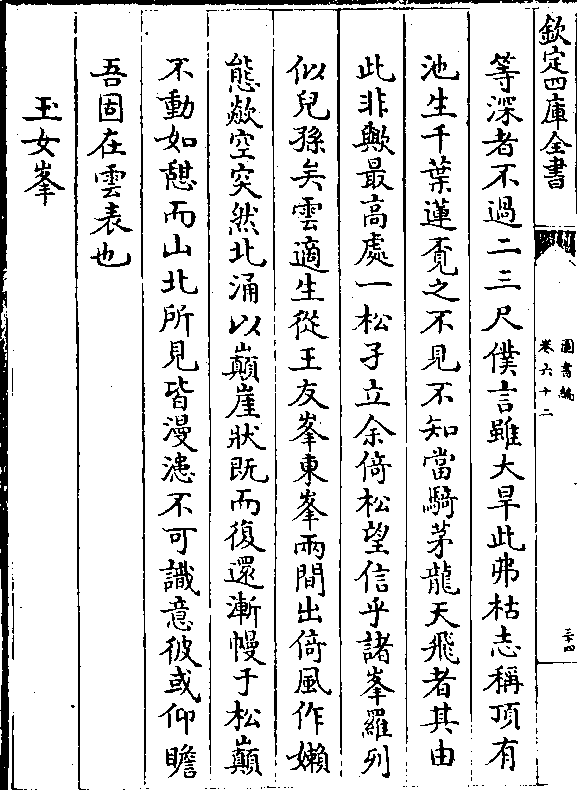 欽定四庫全書
圖書編
卷六十二
三十四
等深者不過二三尺僕言雖大旱此弗枯志稱頂有
池生千葉蓮覔之不見不知當騎茅龍天飛者其由
此非歟最高處一松孑立余倚松望信乎諸峯羅列
似兒孫矣雲適生從王友峯東峯兩間出倚風作嬾
態歘空突然北涌以巔崖狀既而復還漸幔于松巔
不動如憇而山北所見皆漫漶不可識意彼或仰瞻
吾固在雲表也
玉女峯